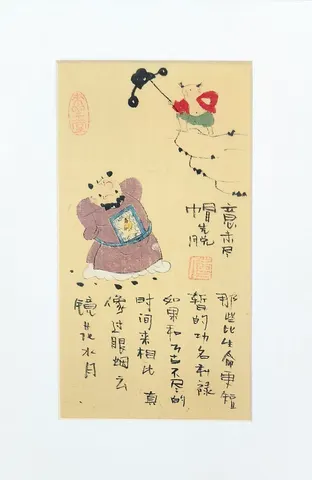 意未尽
帽先脱
那些比生命更短
暂的功名利禄
如果和万古不尽的
时间来相比 真
像过眼烟云
镜花水月